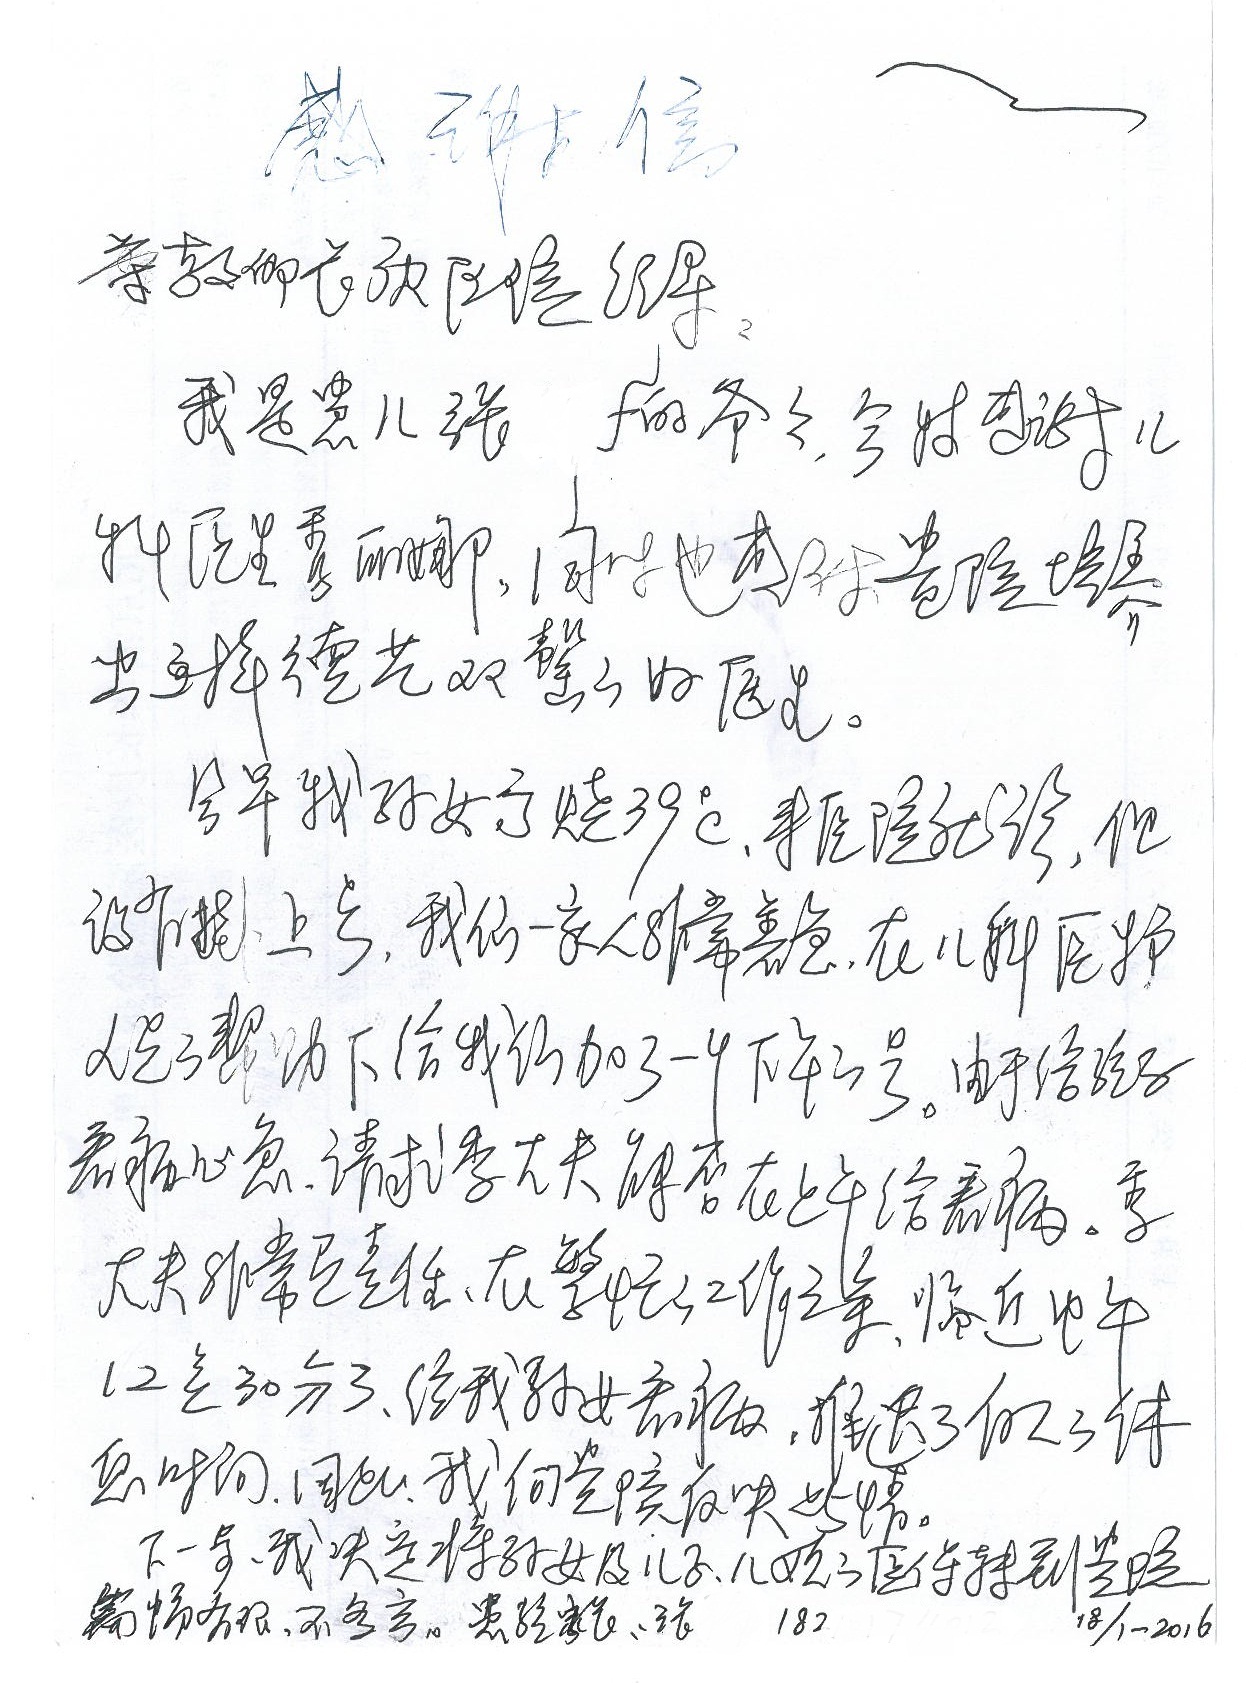 感谢信
尊敬的长航医院领导:
我是患儿张 的爷爷,今特感谢儿
科医生季丽娜,同时也感谢贵院培养
出这样德艺双馨的好医生。
今早我孙女高烧39℃,来医院就诊,但
没有挂上号,我们一家人非常着急,在儿科医护
人员的帮助下给我们加了一个下午的号。由于给孩子
看病心急,请求季大夫能否在上午给看病。季
大夫非常负责任,在繁忙的工作之余,临近中午
12点30分了,给我孙女看病,推迟了个人的休
息时间,因此,我向贵院反映此情。
下一步,我决定将孙女及儿子、儿媳的医保转到贵院
不多言。患孩家长:张 182 18/1-2016